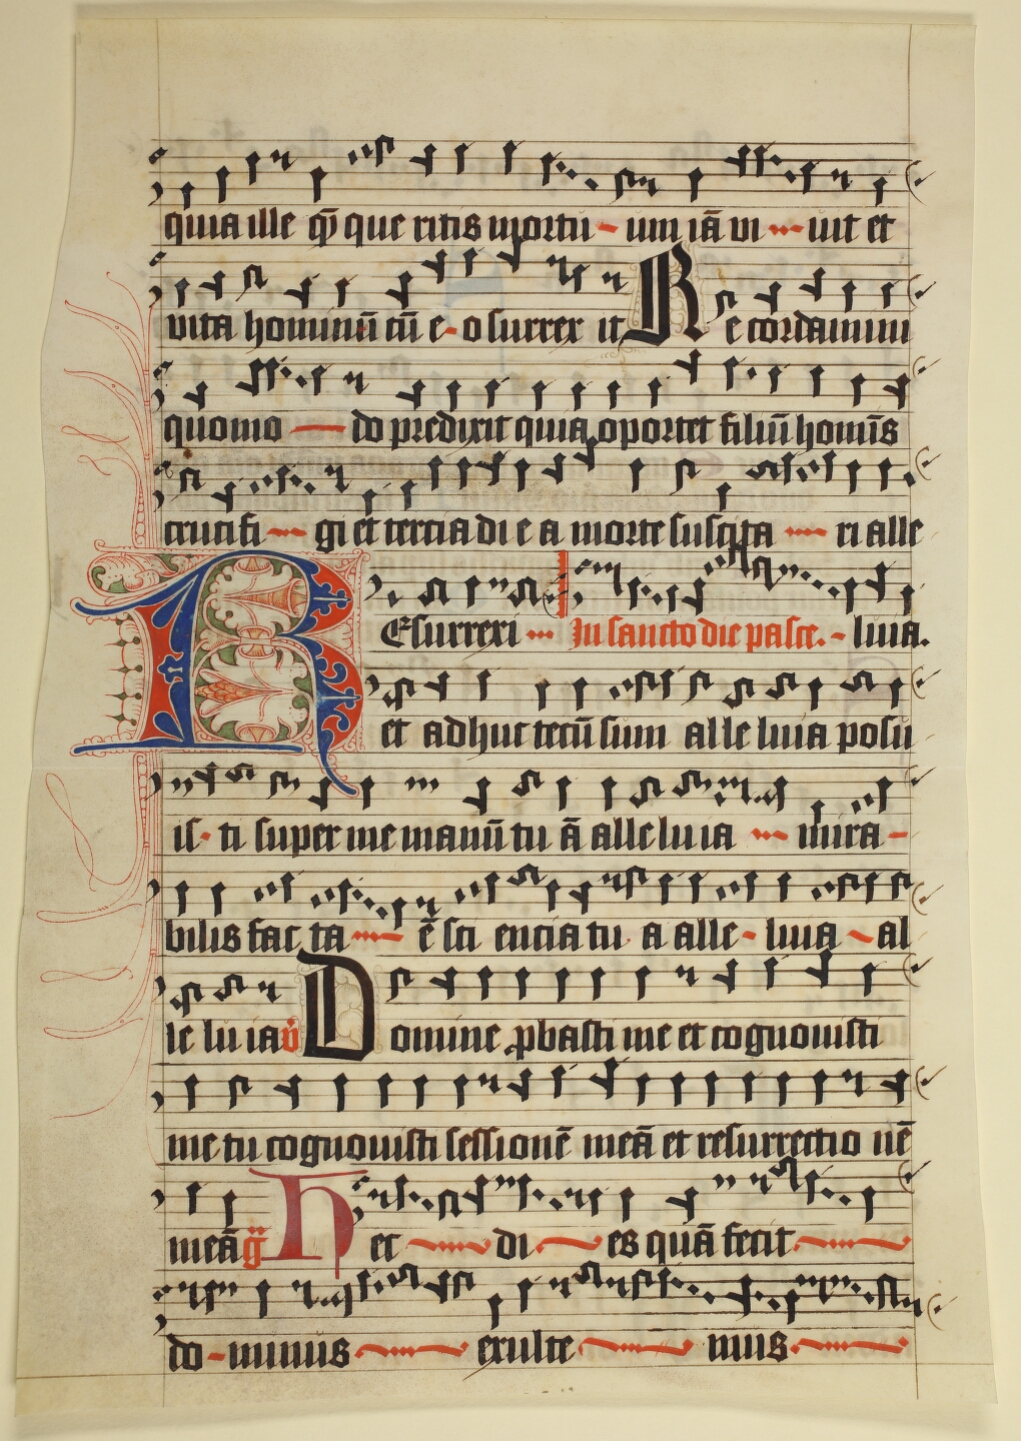 quia ille qͥ que ritis mortu - um iā vi - uit et
vita hominū cū e - o surrex it R e cordamini
quomo - do predixit quia oportet filiū homīs
crucifi - gi et tercia di e a morte suscita - ri alle
R Esurrexi In sancto die pasce. - luia.
et adhuc tecū sum alle luia posu
is - ti super me manū tu ā alleluia - mira -
bilis fac ta - ē sci encia tu a alle - luia - al
le lu ia v̉ D omine ꝓbasti me et cognouisti
me tu cognouisti sessionē meā et resurrectio nē
meā g̈ H ec - di - es quā fecit -
do - minus - exulte - mus -